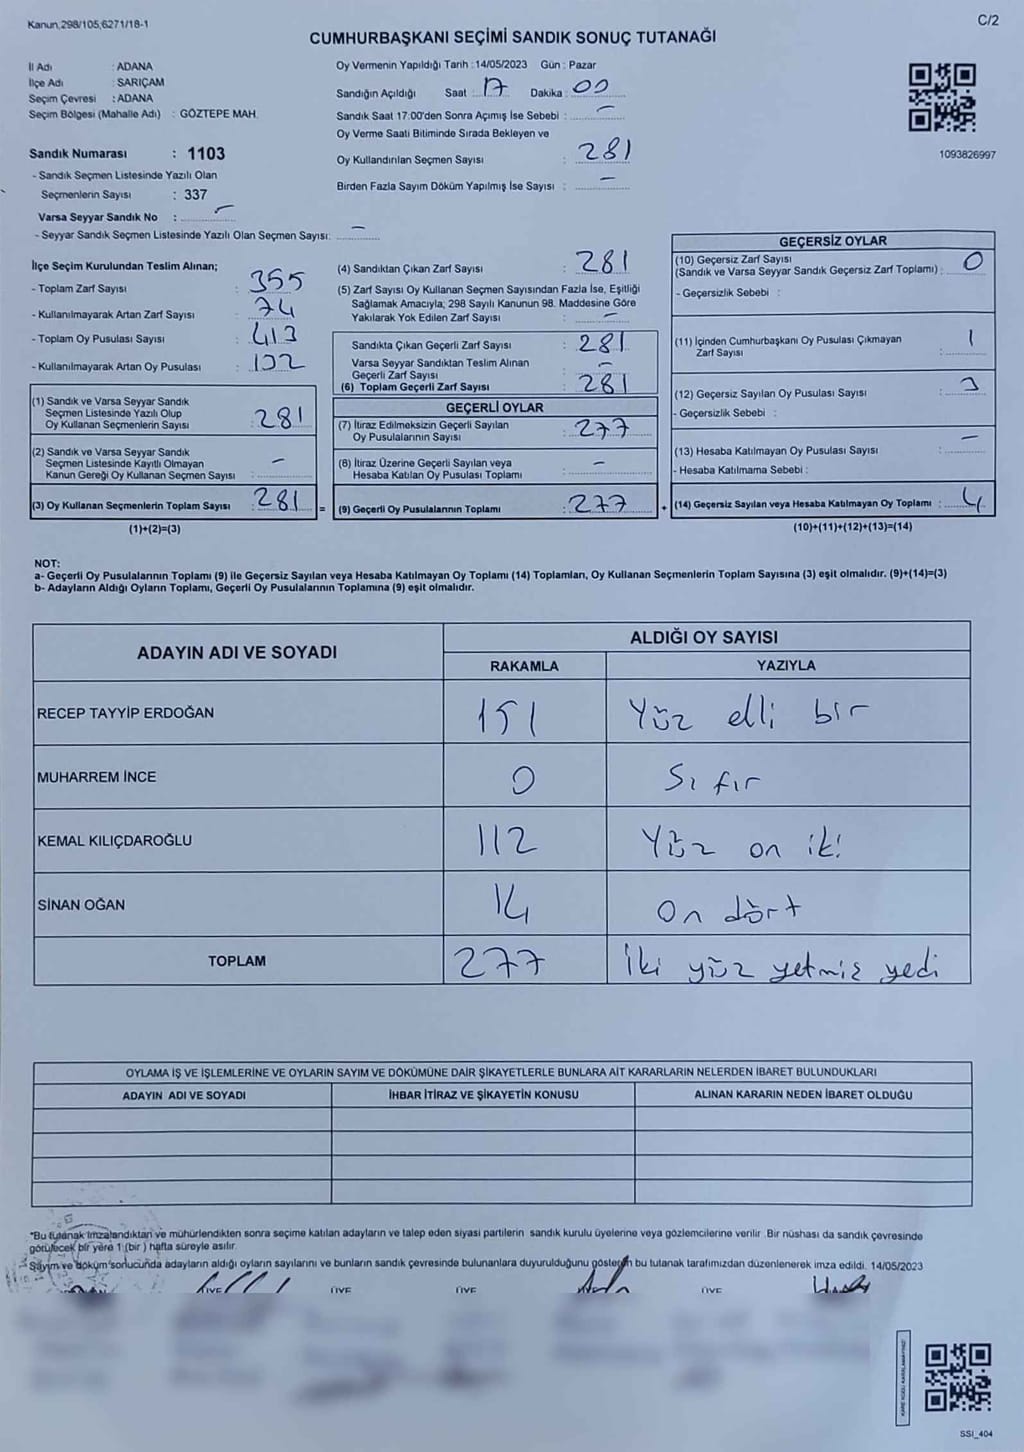 Kanun,298/105,6271/18-1
C/2
CUMHURBAŞKANI SEÇİMİ SANDIK SONUÇ TUTANAĞI
İl Adı : ADANA
İlçe Adı : SARIÇAM
Seçim Çevresi : ADANA
Seçim Bölgesi (Mahalle Adı) : GÖZTEPE MAH.
Sandık Numarası : 1103
- Sandık Seçmen Listesinde Yazılı Olan
Seçmenlerin Sayısı : 337
Varsa Seyyar Sandık No : -
- Seyyar Sandık Seçmen Listesinde Yazılı Olan Seçmen Sayısı: -
Oy Vermenin Yapıldığı Tarih :14/05/2023 Gün : Pazar
Sandığın Açıldığı Saat : 17 Dakika : 00
Sandık Saat 17:00'den Sonra Açımış İse Sebebi : -
Oy Verme Saati Bitiminde Sırada Bekleyen ve
Oy Kullandırılan Seçmen Sayısı : 281
Birden Fazla Sayım Döküm Yapılmış İse Sayısı : -
1093826997
İlçe Seçim Kurulundan Teslim Alınan;
- Toplam Zarf Sayısı : 355
- Kullanılmayarak Artan Zarf Sayısı : 74
- Toplam Oy Pusulası Sayısı : 413
- Kullanılmayarak Artan Oy Pusulası : 132
(1) Sandık ve Varsa Seyyar Sandık
Seçmen Listesinde Yazılı Olup
Oy Kullanan Seçmenlerin Sayısı : 281
(2) Sandık ve Varsa Seyyar Sandık
Seçmen Listesinde Kayıtlı Olmayan
Kanun Gereği Oy Kullanan Seçmen Sayısı : -
(3) Oy Kullanan Seçmenlerin Toplam Sayısı : 281
(1)+(2)=(3)
=
(4) Sandıktan Çıkan Zarf Sayısı : 281
(5) Zarf Sayısı Oy Kullanan Seçmen Sayısından Fazla İse, Eşitliği
Sağlamak Amacıyla; 298 Sayılı Kanunun 98. Maddesine Göre
Yakılarak Yok Edilen Zarf Sayısı : -
Sandıkta Çıkan Geçerli Zarf Sayısı : 281
Varsa Seyyar Sandıktan Teslim Alınan
Geçerli Zarf Sayısı : -
(6) Toplam Geçerli Zarf Sayısı : 281
GEÇERLİ OYLAR
(7) İtiraz Edilmeksizin Geçerli Sayılan
Oy Pusulalarının Sayısı : 277
(8) İtiraz Üzerine Geçerli Sayılan veya
Hesaba Katılan Oy Pusulası Toplamı : -
(9) Geçerli Oy Pusulalarının Toplamı : 277
+
GEÇERSİZ OYLAR
(10) Geçersiz Zarf Sayısı
(Sandık ve Varsa Seyyar Sandık Geçersiz Zarf Toplamı) : 0
- Geçersizlik Sebebi :
(11) İçinden Cumhurbaşkanı Oy Pusulası Çıkmayan
Zarf Sayısı : 1
(12) Geçersiz Sayılan Oy Pusulası Sayısı : 3
- Geçersizlik Sebebi :
(13) Hesaba Katılmayan Oy Pusulası Sayısı : -
- Hesaba Katılmama Sebebi :
(14) Geçersiz Sayılan veya Hesaba Katılmayan Oy Toplamı : 4
(10)+(11)+(12)+(13)=(14)
NOT:
a- Geçerli Oy Pusulalarının Toplamı (9) ile Geçersiz Sayılan veya Hesaba Katılmayan Oy Toplamı (14) Toplamları, Oy Kullanan Seçmenlerin Toplam Sayısına (3) eşit olmalıdır. (9)+(14)=(3)
b- Adayların Aldığı Oyların Toplamı, Geçerli Oy Pusulalarının Toplamına (9) eşit olmalıdır.
ADAYIN ADI VE SOYADI ALDIĞI OY SAYISI
RAKAMLA YAZIYLA
RECEP TAYYİP ERDOĞAN 151 Yüz elli bir
MUHARREM İNCE 0 Sıfır
KEMAL KILIÇDAROĞLU 112 Yüz on iki
SİNAN OĞAN 14 On dört
TOPLAM 277 İki yüz yetmiş yedi
OYLAMA İŞ VE İŞLEMLERİNE VE OYLARIN SAYIM VE DÖKÜMÜNE DAİR ŞİKAYETLERLE BUNLARA AİT KARARLARIN NELERDEN İBARET BULUNDUKLARI
ADAYIN ADI VE SOYADI İHBAR İTİRAZ VE ŞİKAYETİN KONUSU ALINAN KARARIN NEDEN İBARET OLDUĞU
*Bu tutanak imzalandıktan ve mühürlendikten sonra seçime katılan adayların ve talep eden siyasi partilerin sandık kurulu üyelerine veya gözlemcilerine verilir. Bir nüshası da sandık çevresinde
görülecek bir yere 1 (bir ) hafta süreyle asılır.
Sayım ve döküm sonucunda adayların aldığı oyların sayılarını ve bunların sandık çevresinde bulunanlara duyurulduğunu gösteren bu tutanak tarafımızdan düzenlenerek imza edildi. 14/05/2023
ÜYE ÜYE ÜYE ÜYE
SSI_404